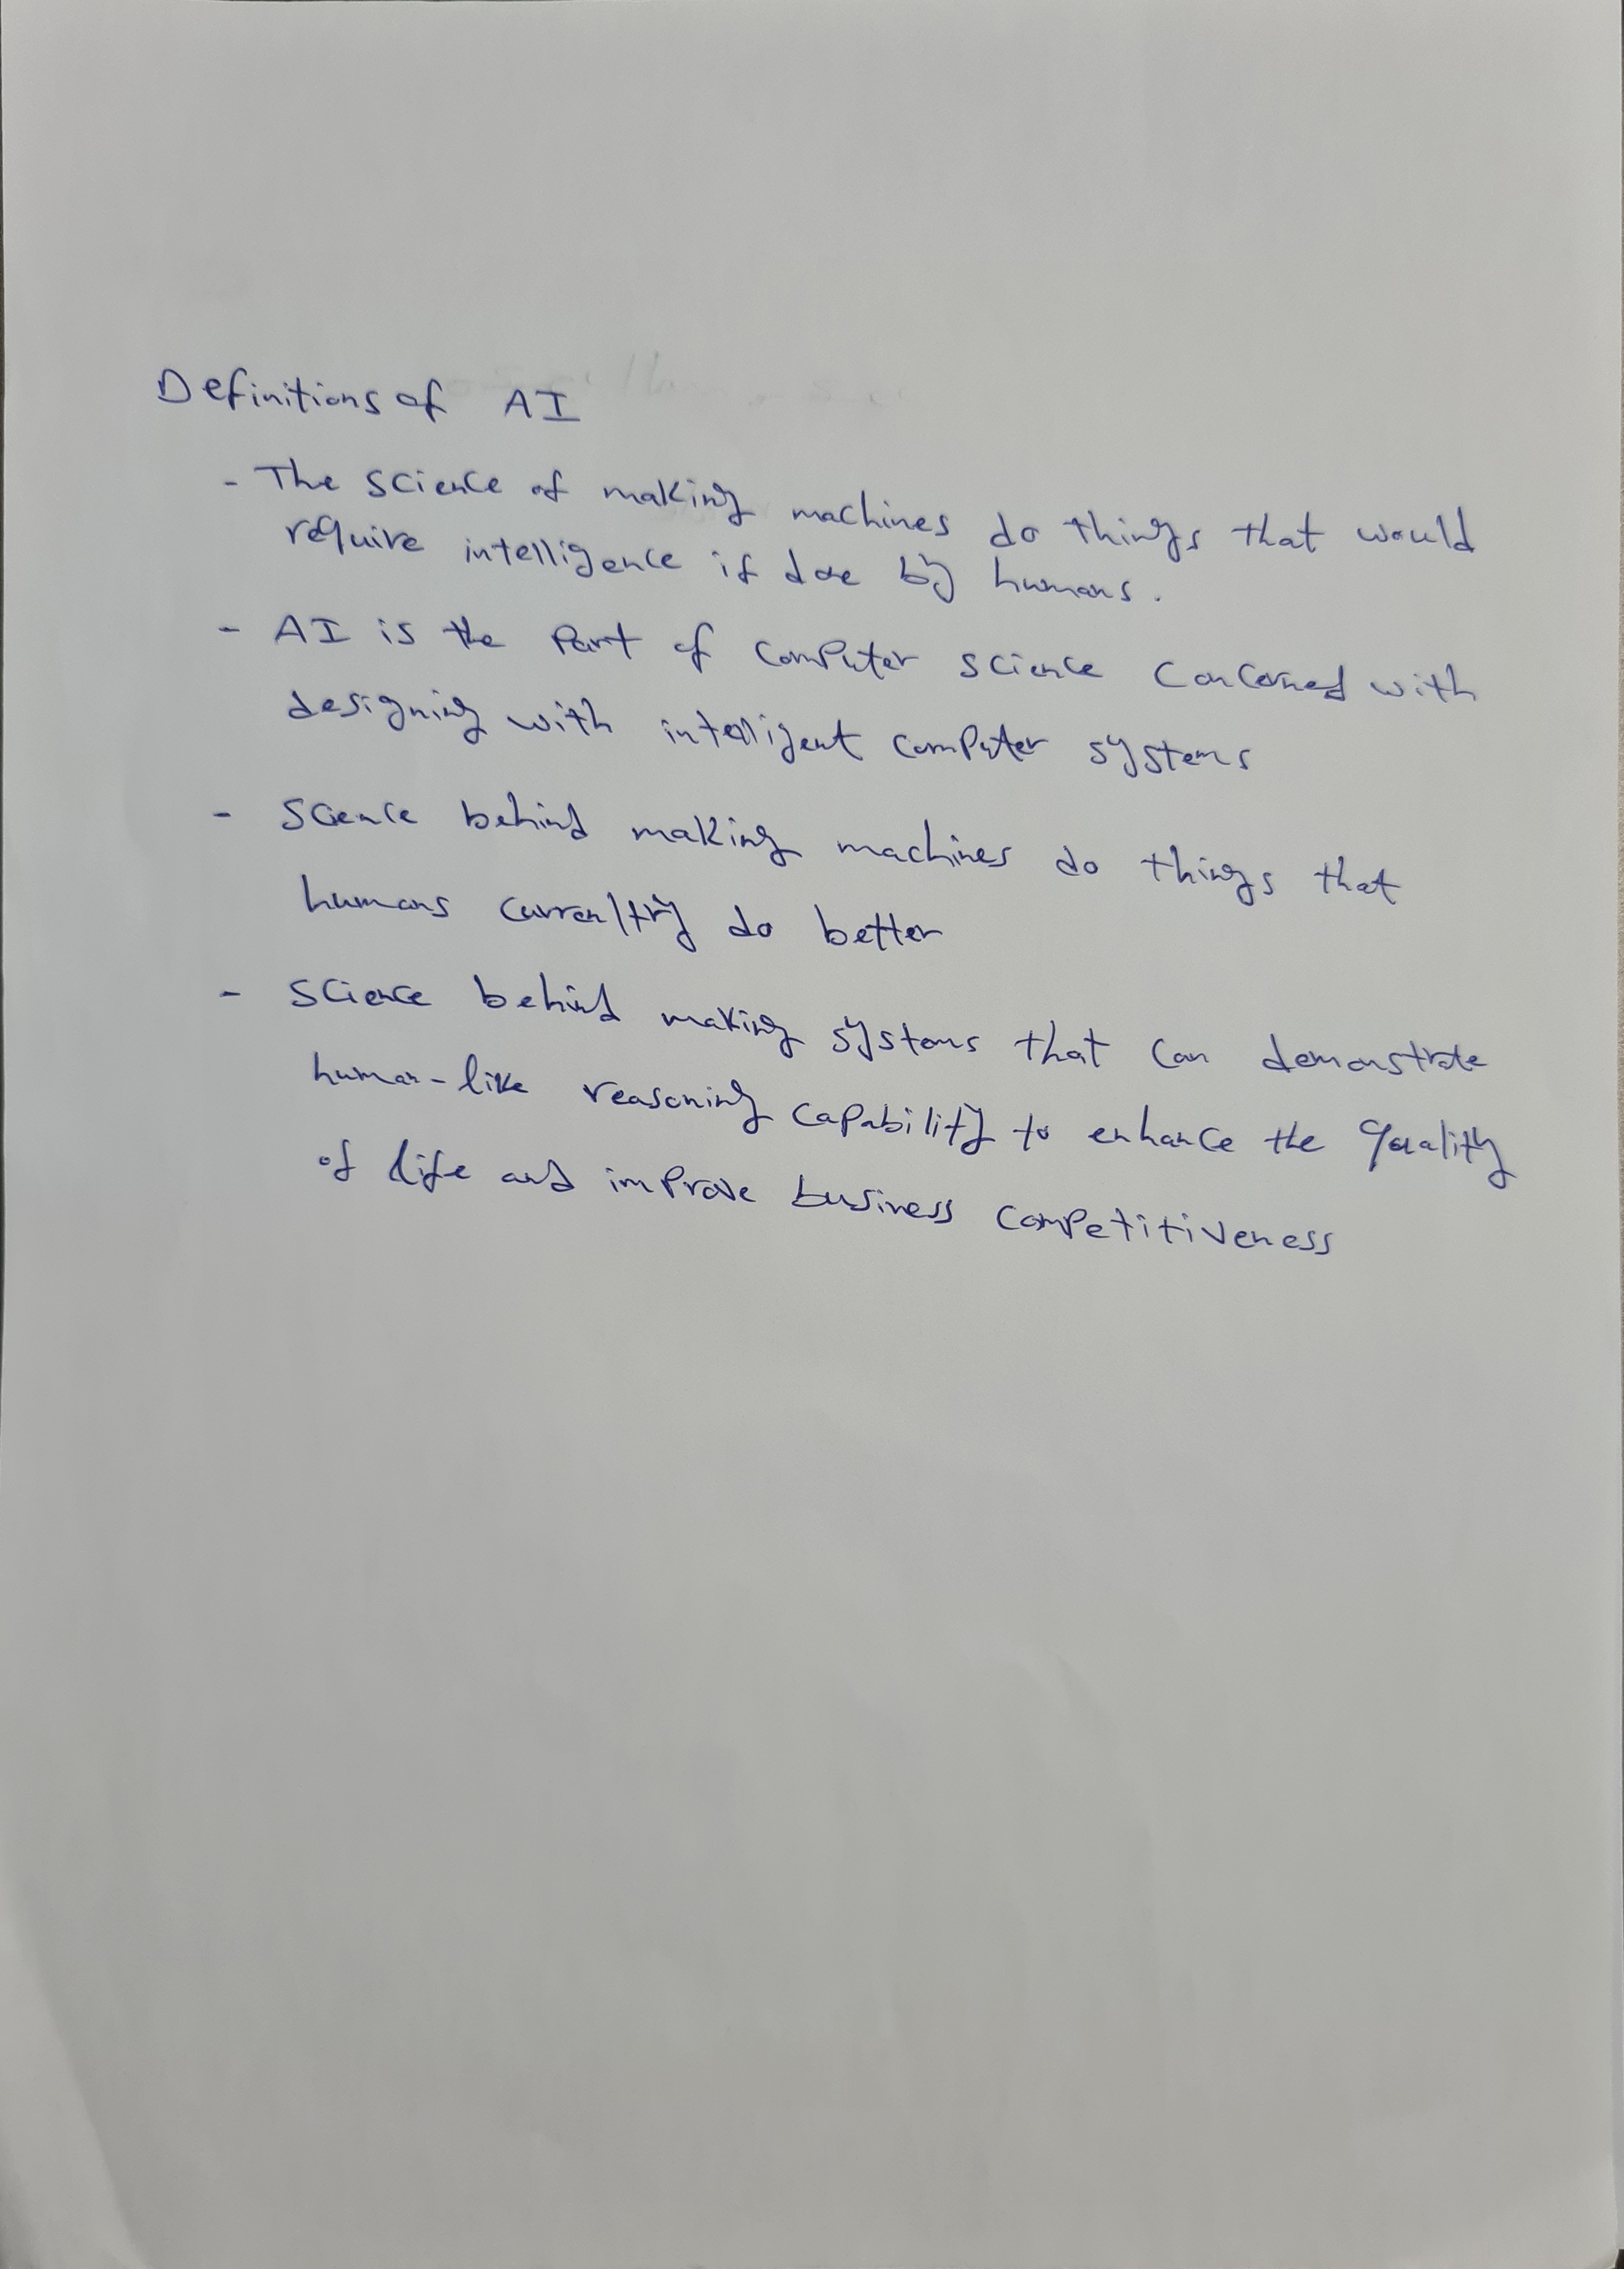 Definitions of AI
- The science of making machines do things that would
require intelligence if done by humans.
- AI is the part of computer science concerned with
designing with intelligent computer systems
- Science behind making machines do things that
humans currently do better
- Science behind making systems that can demonstrate
human-like reasoning capability to enhance the quality
of life and improve business competitiveness